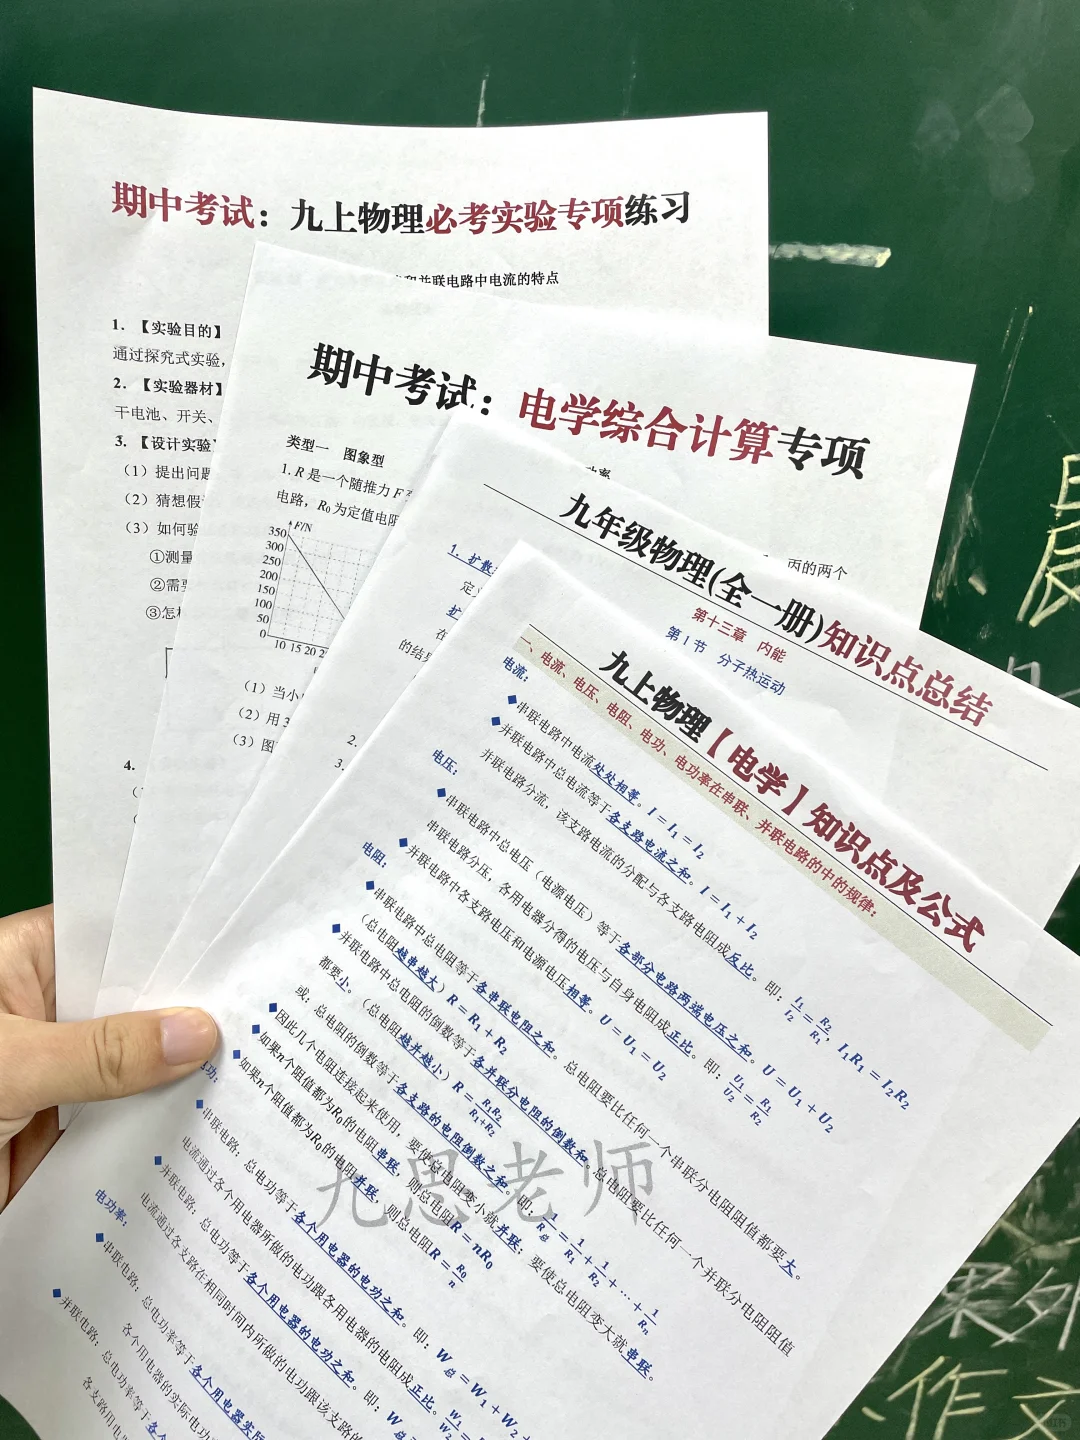 期中考试：九上物理必考实验专项练习
和并联电路中电流的特点
1．【实验目的】
通过探究式实验，
2．【实验器材】
干电池、开关、
3．【设计实验
（1）提出问题
（2）猜想假
（3）如何验
①测量
②需要
③怎
4．
期中考试：电学综合计算专项
类型一 图象型
1. R 是一个随推力 F
电路，R₀ 为定值电阻
丙的两个
F/N
350
300
250
200
150
100
50
0
10 15 20
（1）当小
（2）用 3
（3）图
九年级物理(全一册)知识点总结
第十三章 内能
第1节 分子热运动
1. 扩散
定义
扩
在
的结果
2.
3.
九上物理【电学】知识点及公式
一、电流、电压、电阻、电功、电功率在串联、并联电路的中的规律：
电流：
■ 串联电路中电流处处相等。I = I₁ = I₂
■ 并联电路中总电流等于各支路电流之和。I = I₁ + I₂
并联电路分流，该支路电流的分配与各支路电阻成反比。即：I₁/I₂ = R₂/R₁，I₁R₁ = I₂R₂
电压：
■ 串联电路中总电压（电源电压）等于各部分电路两端电压之和。U = U₁ + U₂
串联电路分压，各用电器分得的电压与自身电阻成正比。即：U₁/U₂ = R₁/R₂
■ 并联电路中各支路电压和电源电压相等。U = U₁ = U₂
电阻：
■ 串联电路中总电阻等于各串联电阻之和。总电阻要比任何一个串联分电阻阻值都要大。
（总电阻越串越大）R = R₁ + R₂
■ 并联电路中总电阻的倒数等于各并联分电阻的倒数和。总电阻要比任何一个并联分电阻阻值
都要小。（总电阻越并越小）R = R₁R₂/R₁+R₂
或：总电阻的倒数等于各支路的电阻倒数之和。即：1/R总 = 1/R₁ + 1/R₂ + ⋯ + 1/Rₙ
■ 因此几个电阻连接起来使用，要使总电阻变小就并联；要使总电阻变大就串联。
■ 如果n个阻值都为R₀的电阻串联，则总电阻R = nR₀
■ 如果n个阻值都为R₀的电阻并联，则总电阻R = R₀/n
功：
■ 串联电路：总电功等于各个用电器的电功之和。即：W总 = W₁ + W₂
电流通过各个用电器所做的电功跟各用电器的电阻成正比。W₁/W₂
■ 并联电路：总电功等于各个用电器的电功之和。即：W总
电流通过各支路在相同时间内所做的电功跟该支路的
电功率：
■ 串联电路：总电功率等于各个用电器实际
各个用电器的实际电功
■ 并联电路：总电功率等于各个
各支路用电
九思老师
课外
作文